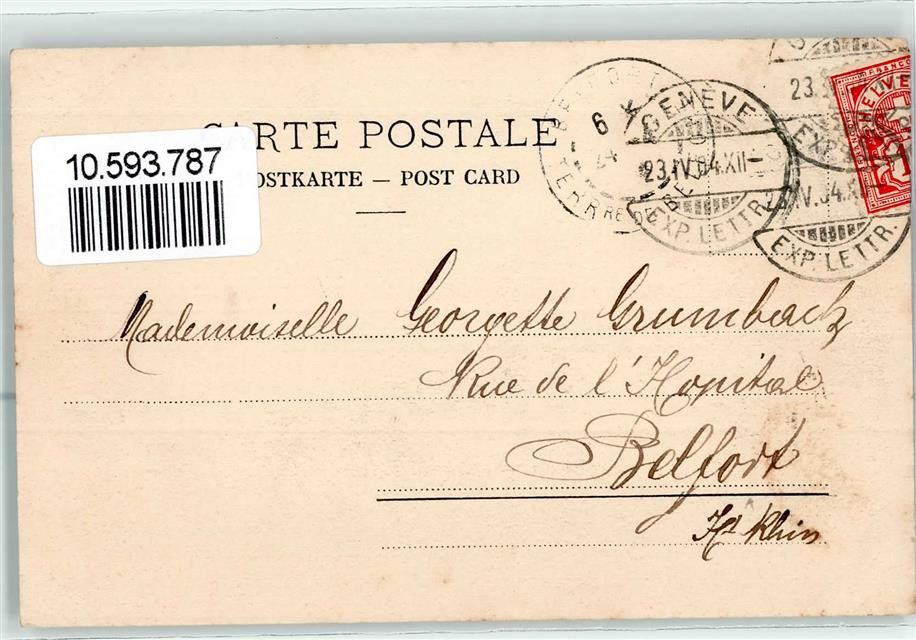 CARTE POSTALE
10.593.787
POSTKARTE — POST CARD
BELFORT
6
GENÈVE
23.IV.04.XII—
EXP. LETTR.
23.
EXP.
FRANCO
HELVE
IV.04.X
EXP. LETTR.
Mademoiselle Georgette Grumbach
Rue de l'Hopital
Belfort
Ht Rhin